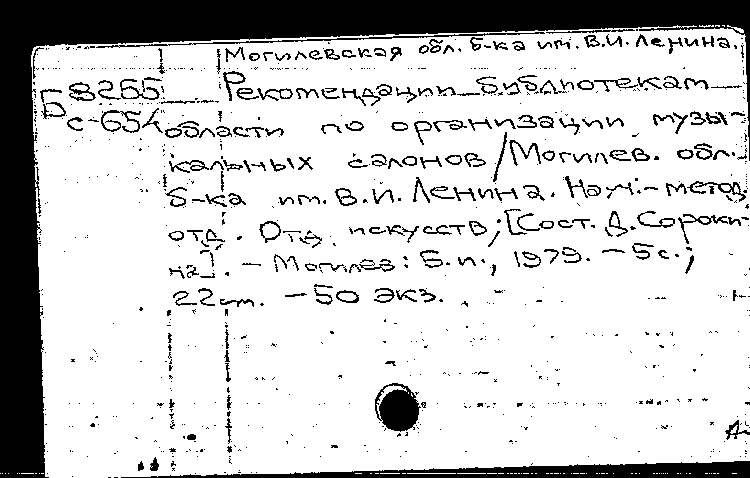 Могилевская обл. б-ка им. В.И. Ленина.
Б 8265 Рекомендации библиотекам
с-654 области по организации музы-
кальных салонов/Могилев. обл.
б-ка им. В.И. Ленина. Науч.-метод.
отд. Отд. искусств; [Сост. Д. Сороки-
на]. – Могилев: Б.и., 1979. – 5с.;
22 cm. – 50 экз.